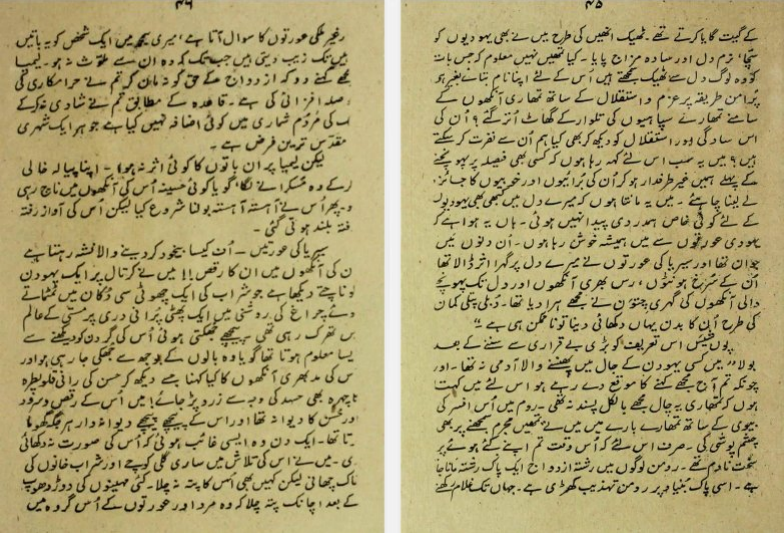 ۴۵
کے گیت گایا کرتے تھے۔ ٹھیک انھیں کی طرح میں نے بھی یہودیوں کو
سچا، نرم دل اور سادہ مزاج پایا۔ کیا تمھیں نہیں معلوم کہ جس بات
کو وہ لوگ دل سے ٹھیک سمجھتے ہیں اُس کے لئے اپنا نام بتائے بغیر ہو
پُرامن طریقہ پر عزم و استقلال کے ساتھ تمھاری آنکھوں کے
سامنے تمھارے سپاہیوں کی تلوار کے گھاٹ اُتر گئے؟ اُن کی
اس سادگی اور استقلال کو دیکھ کر بھی کیا ہم اُن سے نفرت کر سکتے
ہیں؟ میں یہ سب اس لئے کہہ رہا ہوں کہ کسی بھی فیصلہ پر پہونچنے
کے پہلے ہمیں غیر طرفدار ہو کر اُن کی بُرائیوں اور خوبیوں کا جائزہ
لے لینا چاہئے۔ میں یہ مانتا ہوں کہ میرے دل میں کبھی بھی یہودیوں
کے لئے کوئی خاص ہمدردی پیدا نہیں ہوئی۔ ہاں یہ ہوا ہے کہ
یہودی عورتوں سے میں ہمیشہ خوش رہا ہوں۔ اُن دنوں میں
جوان تھا اور سیریا کی عورتوں نے میرے دل پر گہرا اثر ڈالا تھا
اُن کے سُرخ ہونٹوں، رس بھری آنکھوں اور دل تک پہونچ
والی آنکھوں کی گہری چتون نے مجھے ہرا دیا تھا۔ دُبلی پتلی کمان
کی طرح اُن کا بدن یہاں دکھائی دینا تو ناممکن ہی ہے"
اس تعریف کو بڑی بے قراری سے سننے کے بعد
بولا" میں کسی یہودن کے جال میں پھنسنے والا آدمی نہ تھا۔ اور
چونکہ تم آج مجھے کہنے کا موقع دے رہے ہو اس لئے میں کہتا
ہوں کہ تمھاری یہ چال مجھے بالکل پسند نہ تھی۔ روم میں اُس افسر کی
بیوی کے ساتھ تمھارے بارے میں میں نے تمھیں مجرم سمجھنے پر بھی
چشم پوشی کی۔ صرف اس لئے کہ اُس وقت تم اپنے کئے ہوئے پر
سخت نادم تھے۔ رومن لوگوں میں رشتہ ازدواج ایک پاک رشتہ مانا جا
ہے۔ اسی پاک بُنیاد پر رومن تہذیب کھڑی ہے۔ جہاں تک غلام رکھنے
۴۶
غیر ملکی عورتوں کا سوال آتا ہے، میری سمجھ میں ایک شخص کو یہ باتیں
نہیں تک زیب دیتی ہیں جب تک کہ وہ ان سے ملوّث نہ ہو۔ لیمیا
مجھے کہنے دو کہ ازدواج کے حق کو نہ مان کر تم نے حرام کاری کی
حوصلہ افزائی کی ہے۔ قاعدہ کے مطابق تم نے شادی نہ کر کے
ملک کی مردم شماری میں کوئی اضافہ نہیں کیا ہے جو ہر ایک شہری
مقدّس ترین فرض ہے۔
لیکن لیمیا پر ان باتوں کا کوئی اثر نہ ہوا۔ اپنا پیالہ خالی
کر کے وہ مُسکرانے لگا، گویا کوئی حسینہ اُس کی آنکھوں میں ناچ رہی
ہو۔ پھر اُس نے آہستہ آہستہ بولنا شروع کیا لیکن اُس کی آواز رفتہ
رفتہ بلند ہوتی گئی۔
سیریا کی عورتیں۔ اُف کیسا بیخود کر دینے والا نشہ رہتا ہے
اُن کی آنکھوں میں ان کا رقص!! میں نے ایک یہودن
کو ناچتے دیکھا ہے جو شراب کی ایک چھوٹی سی دُکان میں ٹمٹماتے
ہوئے چراغ کی روشنی میں ایک پھٹی پُرانی دری پر مستی کے عالم
میں تھرک رہی تھی۔ پیچھے جھکتی ہوئی اُس کی گردن کو دیکھنے سے
ایسا معلوم ہوتا تھا گویا وہ بالوں کے بوجھ سے جھکی جا رہی ہو اور
اُس کی مدبھری آنکھوں کا کیا کہنا جسے دیکھ کر حسن کی رانی قلوپطرہ
کا چہرہ بھی حسد کی وجہ سے زرد پڑ جائے! میں اُس کے رقص و سرود
اور حُسن کا دیوانہ تھا اور اس کے پیچھے پیچھے دیوانہ وار ہر جگہ گھوما
کرتا تھا۔ ایک دن وہ ایسی غائب ہوئی کہ اُس کی صورت نہ دکھائی
دی۔ میں نے اس کی تلاش میں ساری گلی کوچے اور شراب خانوں کی
خاک چھانی لیکن کہیں بھی اُس کا پتہ نہ چلا۔ کئی مہینوں کی دوڑ دھوپ
کے بعد اچانک پتہ چلا کہ وہ مرد اور عورتوں کے اُس گروہ میں